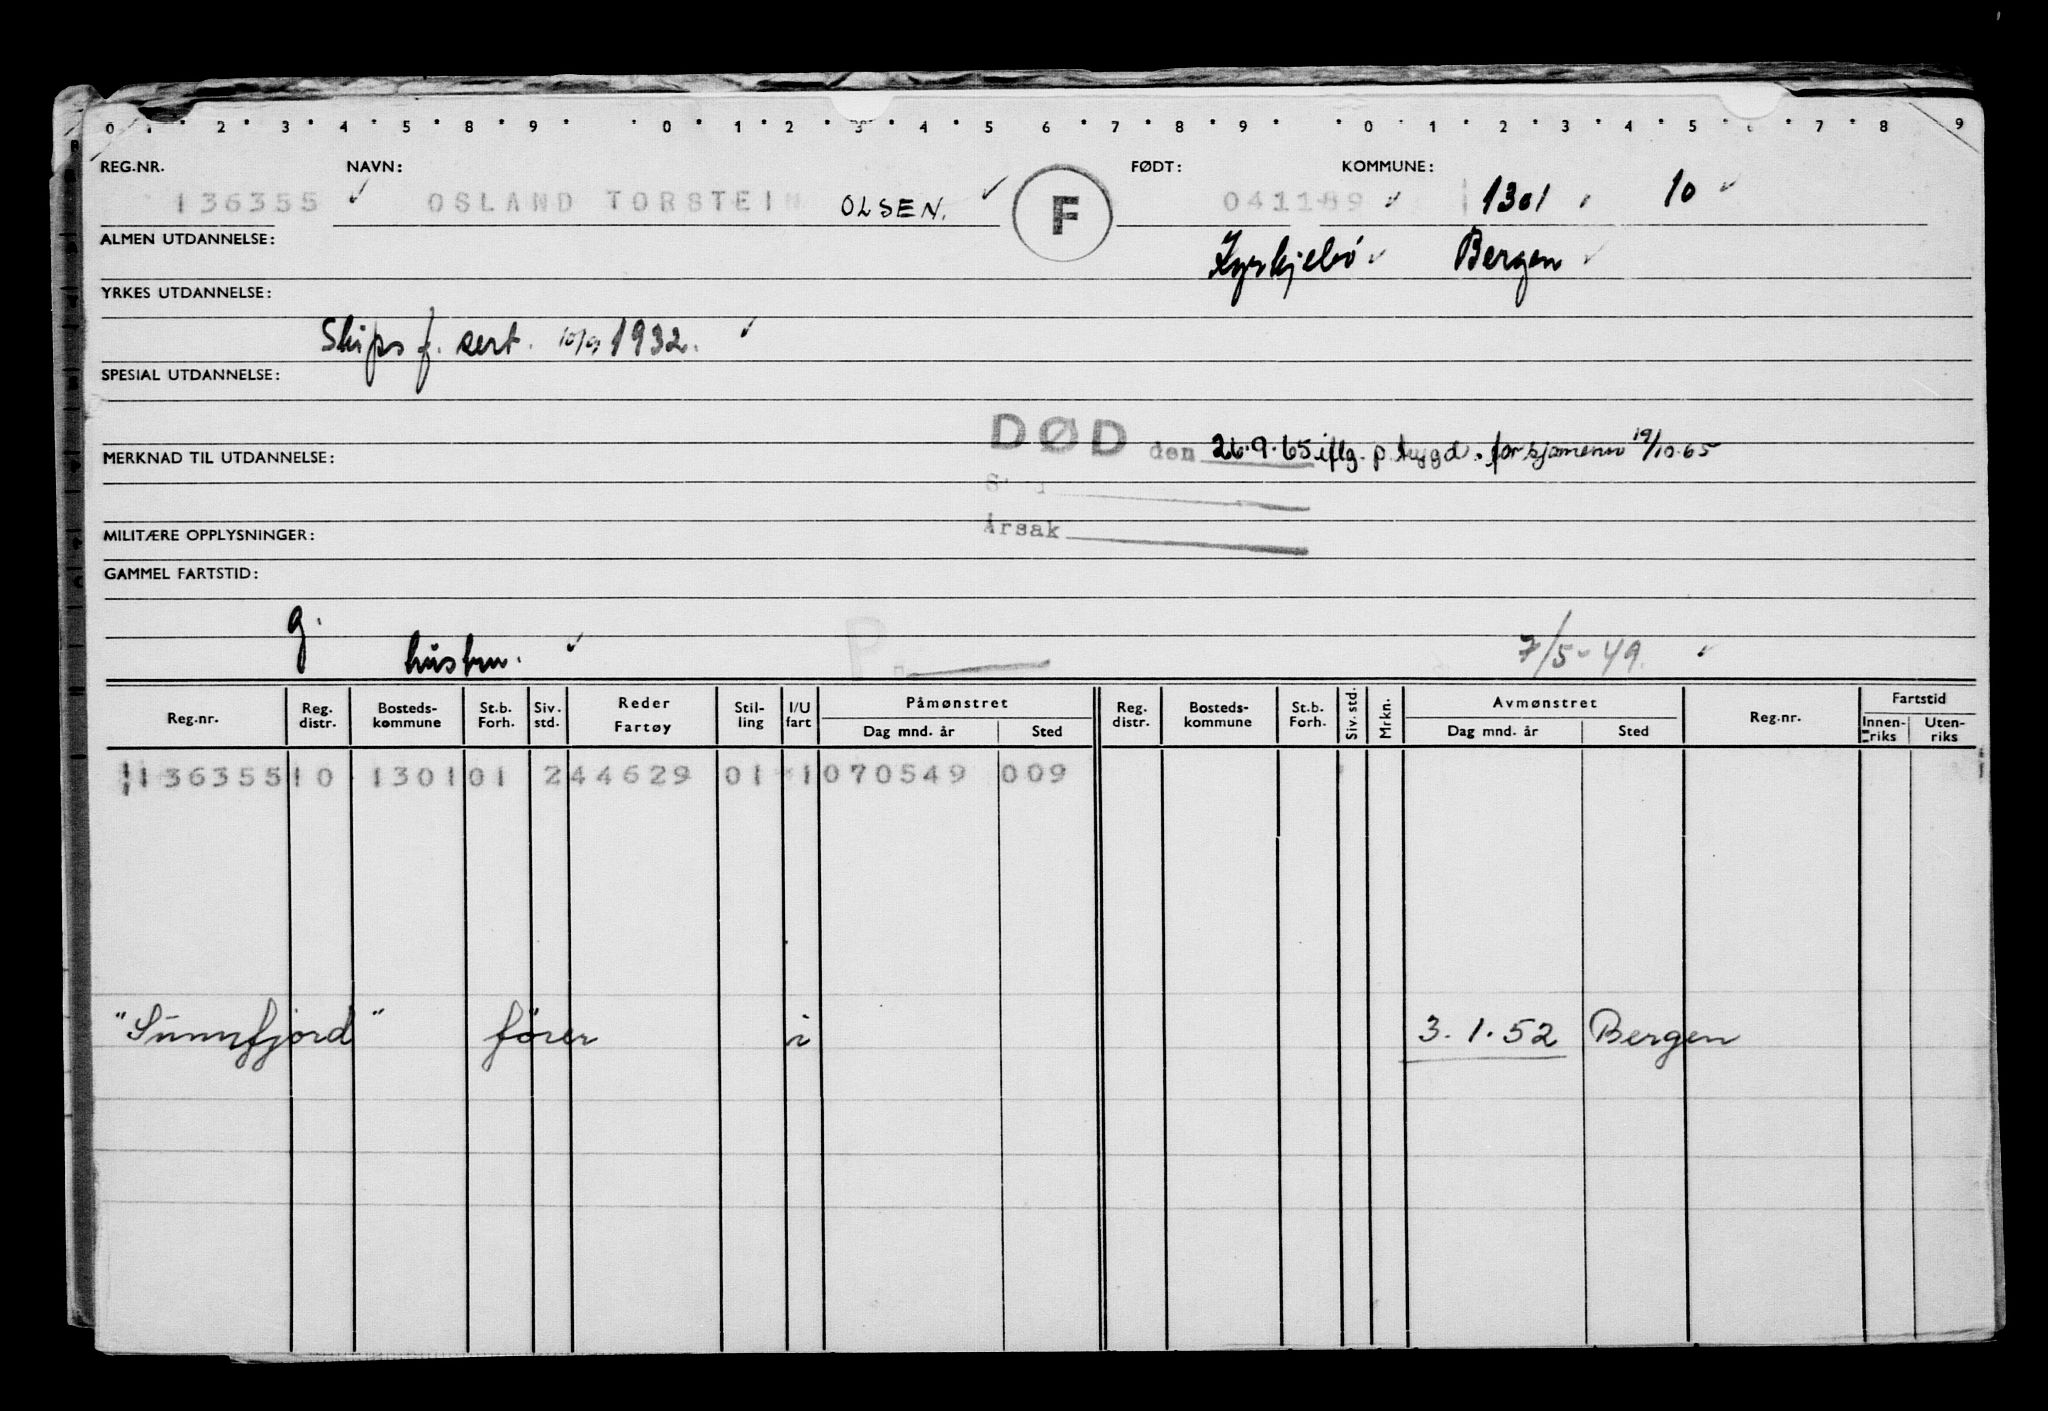 0 1 2 3 4 5 8 9 0 1 2 3 4 5 6 7 8 9 0 1 2 3 4 5 6 7 8 9
REG.NR. NAVN: FØDT: KOMMUNE:
136355 OSLAND TORSTEIN OLSEN. F 041189 1301 10
ALMEN UTDANNELSE: Kyrkjebö Bergen
YRKES UTDANNELSE:
Skips f. sert. 1932.
SPESIAL UTDANNELSE:
DØD den 26.9.65 iflg. p. trygd. for sjømenn 19/10.65
MERKNAD TIL UTDANNELSE:
Årsak
MILITÆRE OPPLYSNINGER:
GAMMEL FARTSTID:
g. P.
hustru. 7/5-49.
Reg.nr. Reg. distr. Bosteds-kommune St.b. Forh. Siv. std. Reder Fartøy Stil-ling I/U fart Påmønstret Dag mnd. år Sted Reg. distr. Bosteds-kommune St.b. Forh. Siv. std. Mrkn. Avmønstret Dag mnd. år Sted Reg.nr. Fartstid Innen-riks Uten-riks
136355 10 1301 01 2 44629 01 1 070549 009
"Sunnfjord" fører i 3.1.52 Bergen